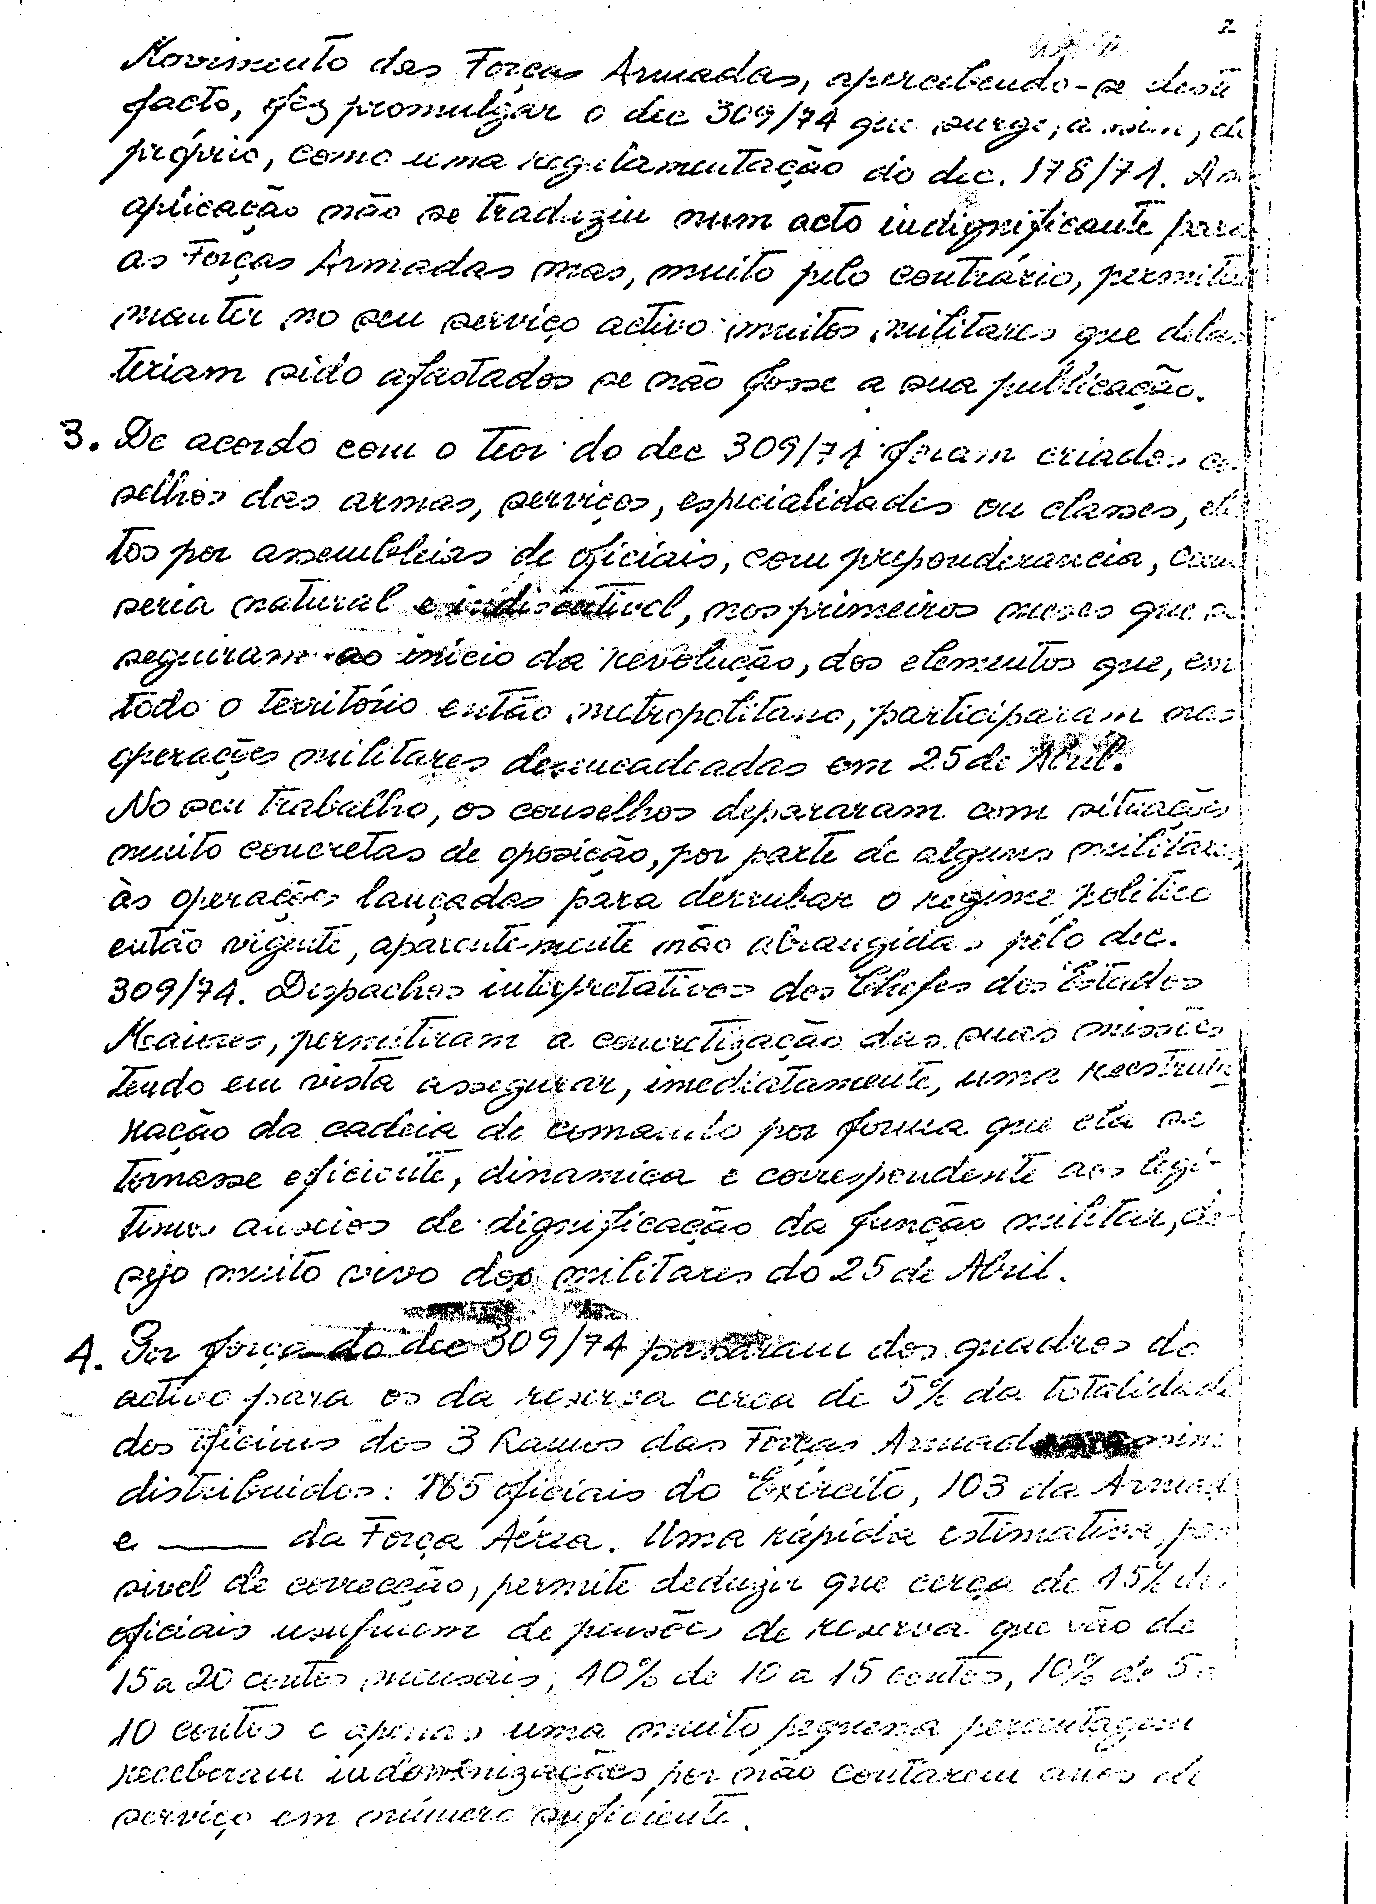 2
Movimento das Forças Armadas, apercebendo-se deste
facto, fez promulgar o dec 309/74 que surge, assim, de
próprio, como uma regulamentação do dec. 178/71. A
aplicação não se traduziu num acto indignificante para
as Forças Armadas mas, muito pelo contrário, permitiu
manter no seu serviço activo muitos militares que delas
teriam sido afastados se não fosse a sua publicação.
3. De acordo com o teor do dec 309/74 foram criados
selhos das armas, serviços, especialidades ou classes, elei
tos por assembleias de oficiais, com preponderancia, como
seria natural e indiscutivel, nos primeiros meses que se
seguiram ao início da revolução, dos elementos que, em
todo o território então metropolitano, participaram nas
operações militares desencadeadas em 25 de Abril.
No seu trabalho, os conselhos depararam com situações
muito concretas de oposição, por parte de alguns militares
às operações lançadas para derrubar o regime politico
então vigente, aparentemente não abrangidas pelo dec.
309/74. Despachos interpretativos dos Chefes dos Estados
Maiores, permitiram a concretização das suas missões
tendo em vista assegurar, imediatamente, uma reestrutu
ração da cadeia de comando por forma que ela se
tornasse eficiente, dinamica e correspondente aos legi-
timos anseios de dignificação da função militar, de-
sejo muito vivo dos militares do 25 de Abril.
4. Por força do dec 309/74 passaram dos quadros do
activo para os da reserva cerca de 5% da totalidade
dos oficiais dos 3 Ramos das Forças Armadas assim
distribuidos: 165 oficiais do Exército, 103 da Armada
e ____ da Força Aérea. Uma rápida estimativa, pas
sivel de correcção, permite deduzir que cerca de 15% dos
oficiais usufruem de pensões de reserva que vão de
15 a 20 contos mensais, 40% de 10 a 15 contos, 10% de 5 a
10 contos e apenas uma muito pequena percentagem
receberam indominizações por não contarem anos de
serviço em número suficiente.